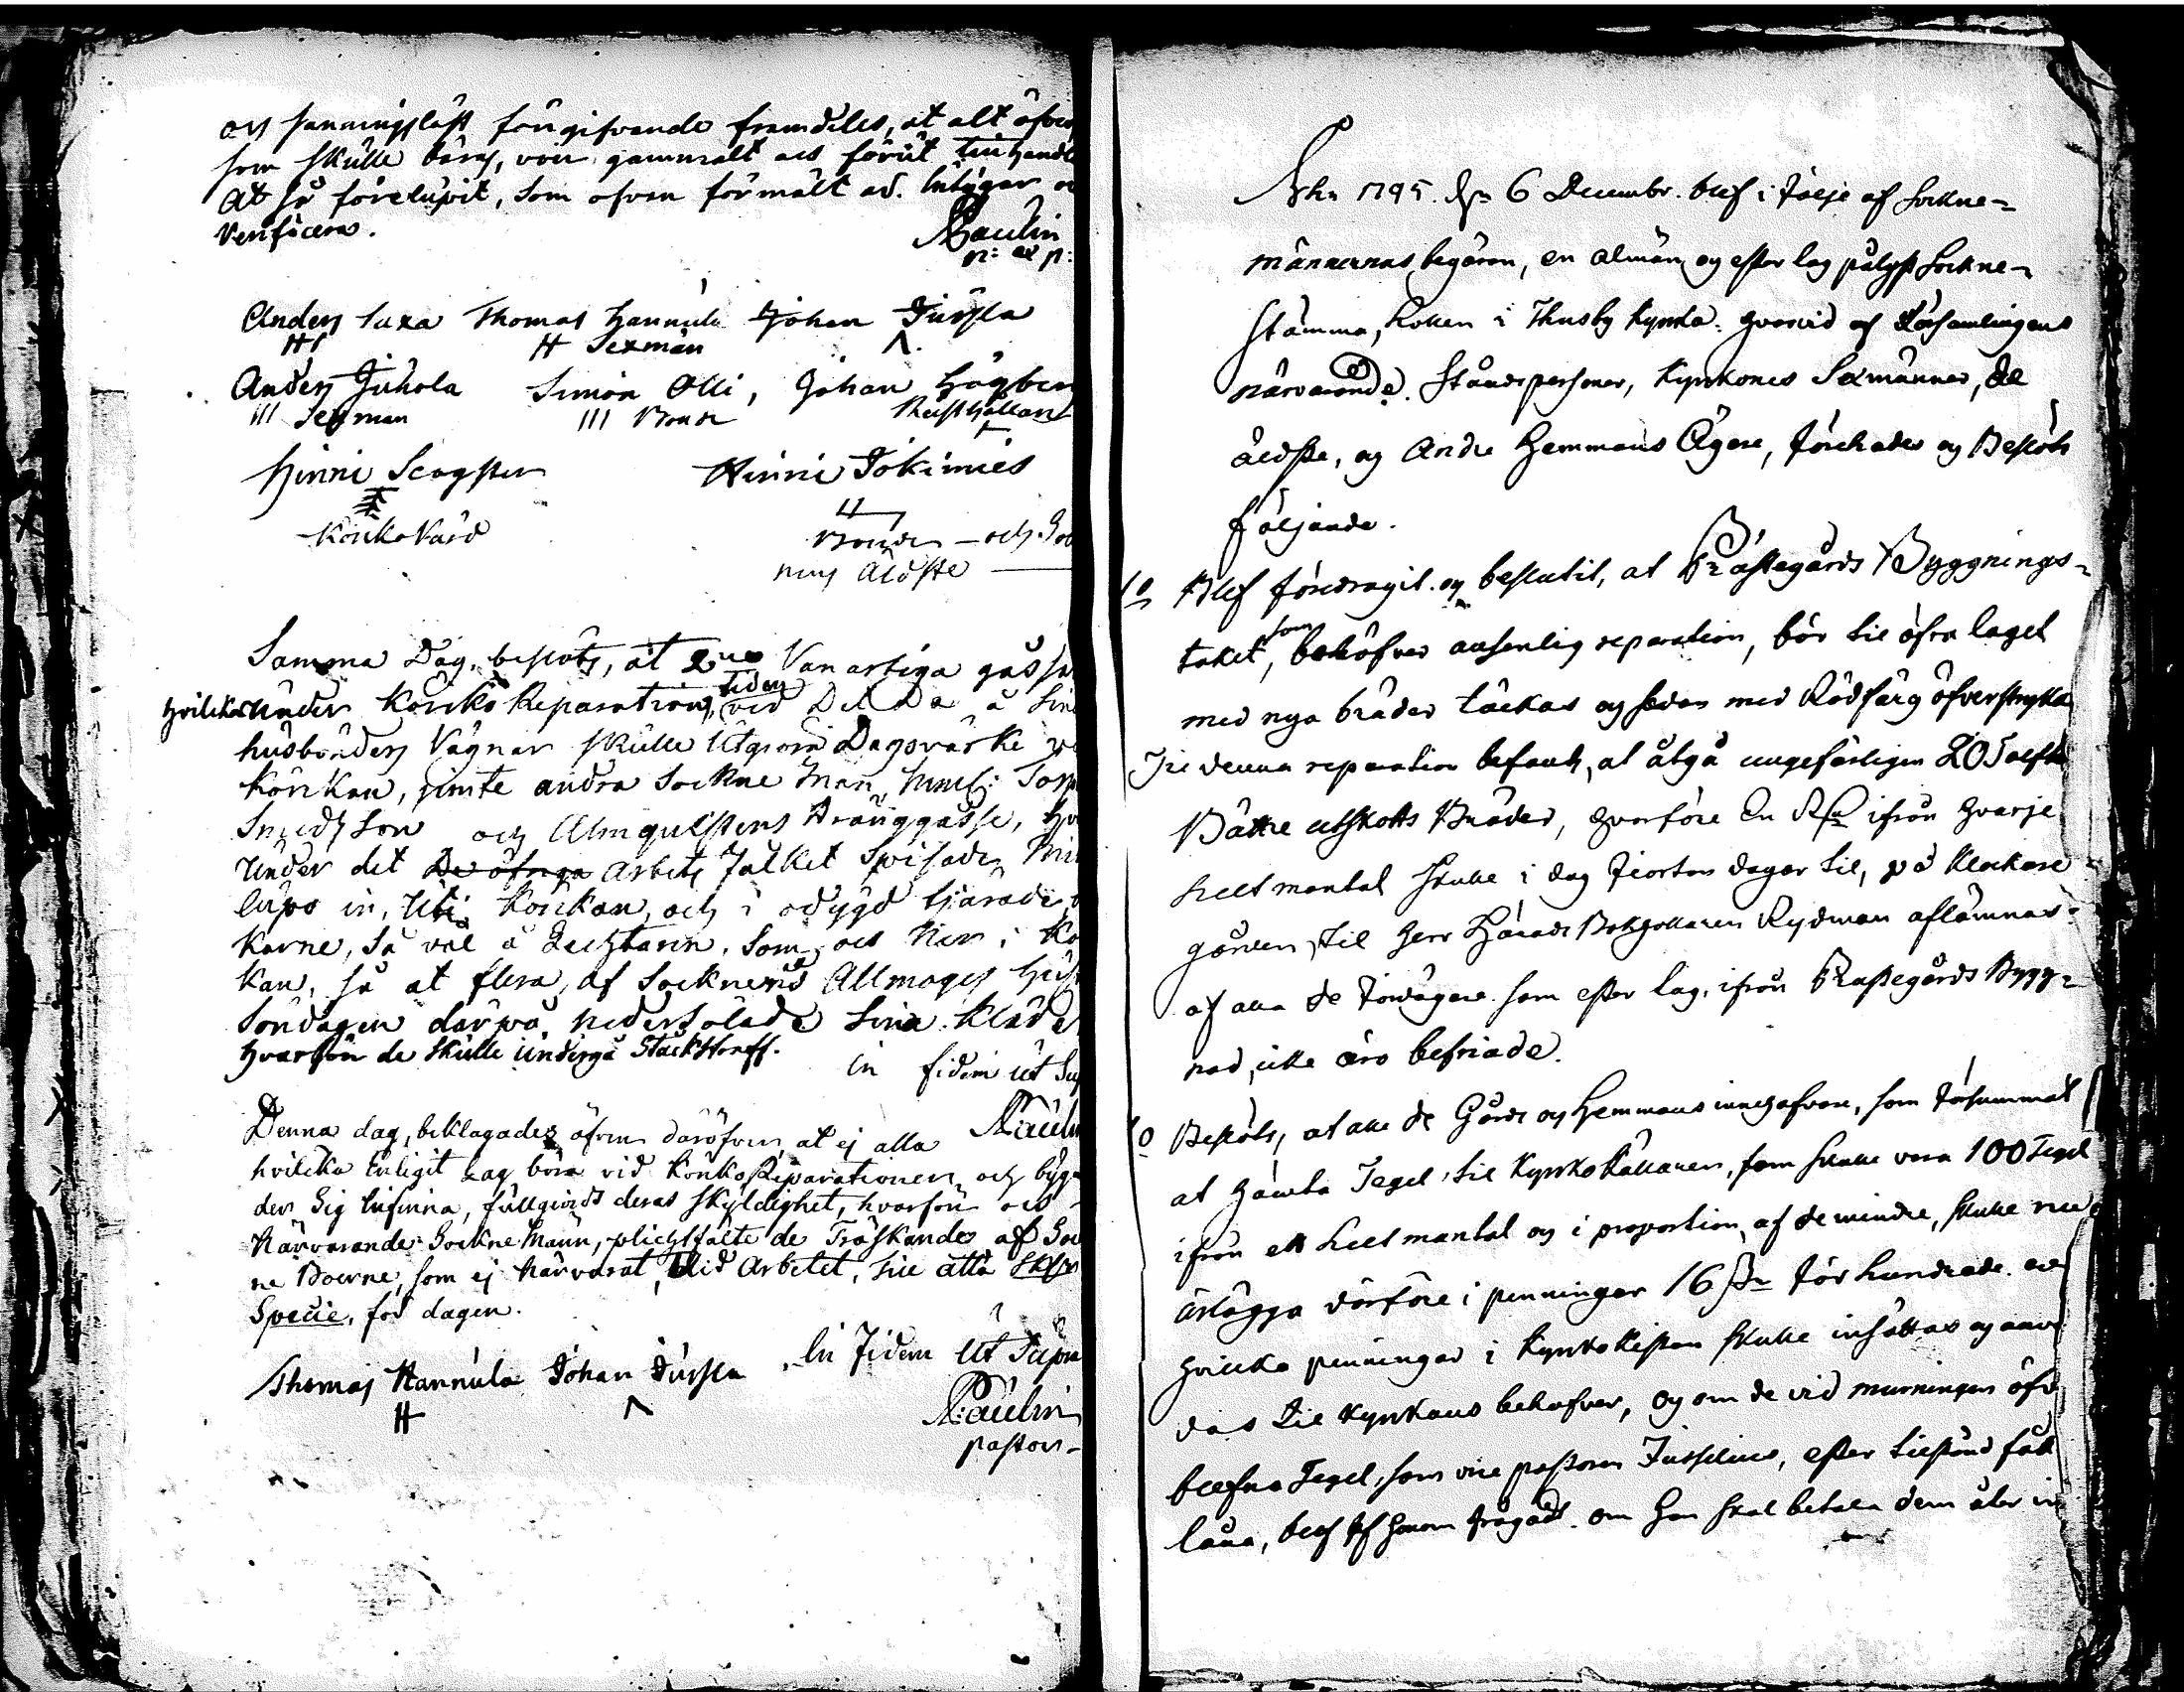 och sanningslöst föregifvande framdeles, at alt
som skulle bäras, voro gammalt och förut
At så förelupit, som ofvan förmält är. Intygar
Verificera.
Paulin
p: ex p:
Anders Saxa Thomas Hannula Johan Jussla
Sexman
Anders Juhola Simon Olli, Johan Högben
Sexman Bonde Rusthållare
Hinric Hinric Jokimies
Körko Värd
Bonde - och
nens Äldste
Samma Dag, beslöts, at Vanartiga gåssar
hvilka under Körko Reparations tiden, vid å
husbönders Vägnar skulle Utgöra Dagsvärke
Körkan, jemte andra Sockne Män,
Smeds Son och Almqulstens Dränggåsse,
Under det De öfriga Arbets folket Spisade
lupo in, Uti Körkan, och i odygd tjärade
karne, Så väl å Lechtarin, Som och Ner i
kan, så at flera, af Socknens Allmoges
Söndagen därpå, nedersölade Sina Kläder
hvarföre de skulle undergå Stockstraff.
in fidem ut
Denna dag, beklagades äfven däröfver, at ej alla Paulin
hvilcka Enligit Lag böra vid KörkoReparationen, och
der Sig infinna, fullgiords deras skyldighet, hvarföre och
Närvarande Sockne Männ, plichtfälte de Tröskande af
ne Boerne, som ej närvarat, Vid Arbetet, till åtta
Specie, för dagen.
Thomas Hannula Johan Jussla In Fidem Ut Supra
Paulin
pastor
Åhr 1795. d. 6 Decembr. blef i följe af Sockne-
männernas begäran, en almän og efter lag pålyst Sockne-
stämma, hollen i Thusby Kyrcka. hvarvid af Församlingens
närvarande Ståndspersoner, Kyrkones Sexmänner, de
äldste, og Andre Hemmans Ägare, förehades og Beslöts
följande.
1o Blef föredragit og beslutit, at Prästegårds Byggnings-
taket, som behöfver ansenlig reparation, bör til öfra laget
med nya bräder täckas og sedan med Rödfärg öfverstrykas
Til denna reparation befants, at åtgå ungefärligen 20 Tolfter
Bättre utskotts Bräder, hvarföre En ifrån hvarje
helt mantal skulle i dag fiorton dagar til, på Klockare
gården, til Herr Härads Bokhollaren Rydman aflämnas
af alla de Jordägare som efter lag, ifrån Prästegårds Bygg-
nad, icke äro befriade.
o Beslöts, at alle de Gårds og Hemmans innehafvare, som försummat
at hämta Tegel til Kyrko källaren, som skulle vara 100 Tegel
ifrån ett helt mantal og i proportion af de mindre, skulle nu
ärlägga därföre i penningar 16 för hundrade
hvilcka penningar i Kyrko Kistan skulle insättas og
das til Kyrkans behofver, og om de vid murningen öfver
blefne Tegel, som vice pastoren Jusselius, efter tilstånd fått
låna, blef af honom frågadt om han skal betala dem åter